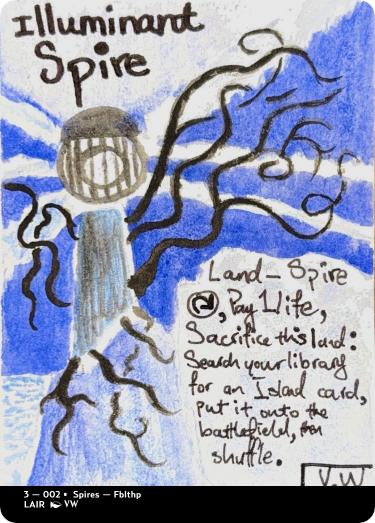 Illuminant
Spire
Land – Spire
, Pay 1 life,
Sacrifice this land:
Search your library
for an Island card,
put it onto the
battlefield, then
shuffle.
V.W
3 — 002 • Spires — Fblthp
LAIR VW